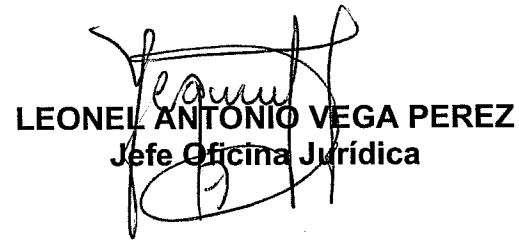 LEONEL ANTONIO VEGA PEREZ
Jefe Oficina Jurídica